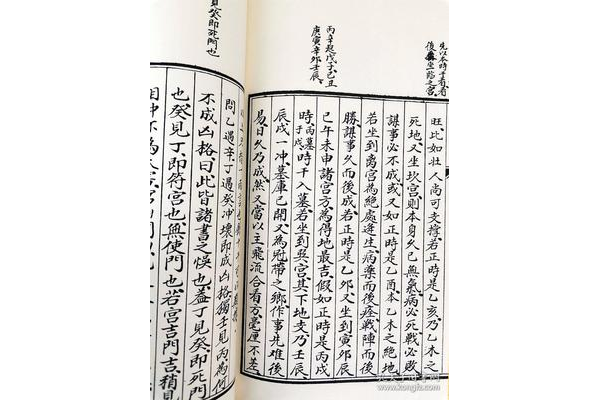 先以本時干看看
後與坐臨之宮
丙辛起戊子己丑
庚寅辛卯壬辰
旺比如壯人尚可支撐若正時是乙亥乃乙木之
死地又坐坎宮則本身久已無氣病必死戰必敗
謀事必不成或又如正時是乙酉本乙木之絕地
若坐到离宮為絕處逢生病藥而後痊戰陣而後
勝謀事久而後成若正時是乙卯又坐到寅卯辰
巳午未申諸宮方為得地最吉假如正時是丙戌
時丙墓于戌時干入墓若坐到巽宮其下地支乃壬辰
辰戌一冲墓庫已開又為冠帶之鄉作事先难後
易日久乃成然又當以主飛流合有方毫厘不差
問乙遇辛丁遇癸冲壞即成凶格獨壬見丙為何
不成凶格曰此皆諸書之悞也蓋丁見癸即死門
也癸見丁即符宮也無使門也若宮吉門吉稍見
見癸即死門也
www.kongfz.com